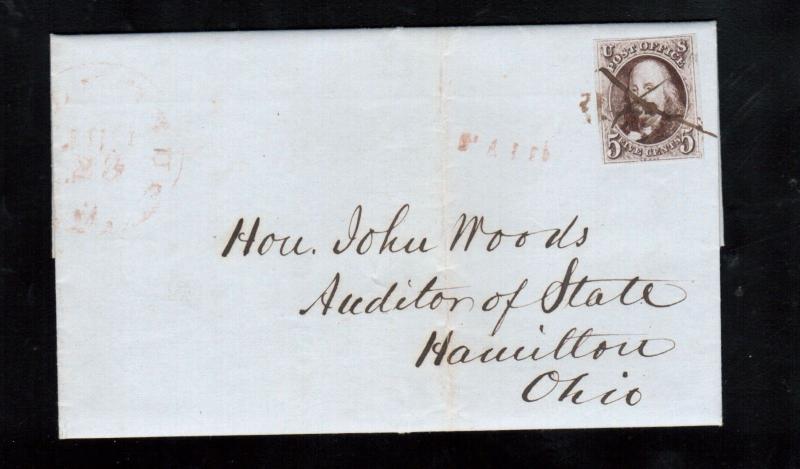 U S
POST OFFICE
5 FIVE CENTS 5
Hon. John Woods
Auditor of State
Hamilton
Ohio